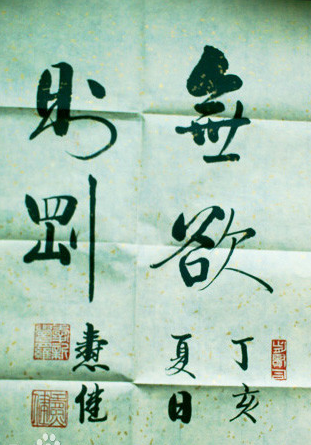 無欲
則剛
丁亥
夏日